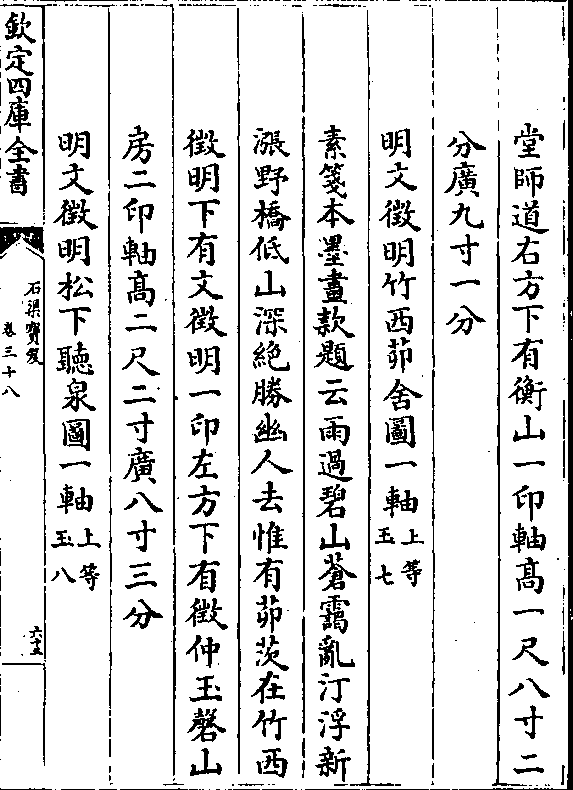 堂師道右方下有衡山一印軸髙一尺八寸二
分廣九寸一分
明文徵明竹西茆舍圖一軸上等玉七
素箋本墨畫款題云雨過碧山蒼靄亂汀浮新
漲野橋低山深絶勝幽人去惟有茆茨在竹西
徵明下有文徵明一印左方下有徵仲玉磬山
房二印軸髙二尺二寸廣八寸三分
明文徵明松下聽泉圖一軸上等玉八
欽定四庫全書
石渠寶笈
卷三十八
六十五